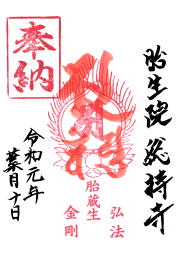 胎生院 総持寺
弘法
胎蔵生
金剛
奉納
令和元年
葉月十日